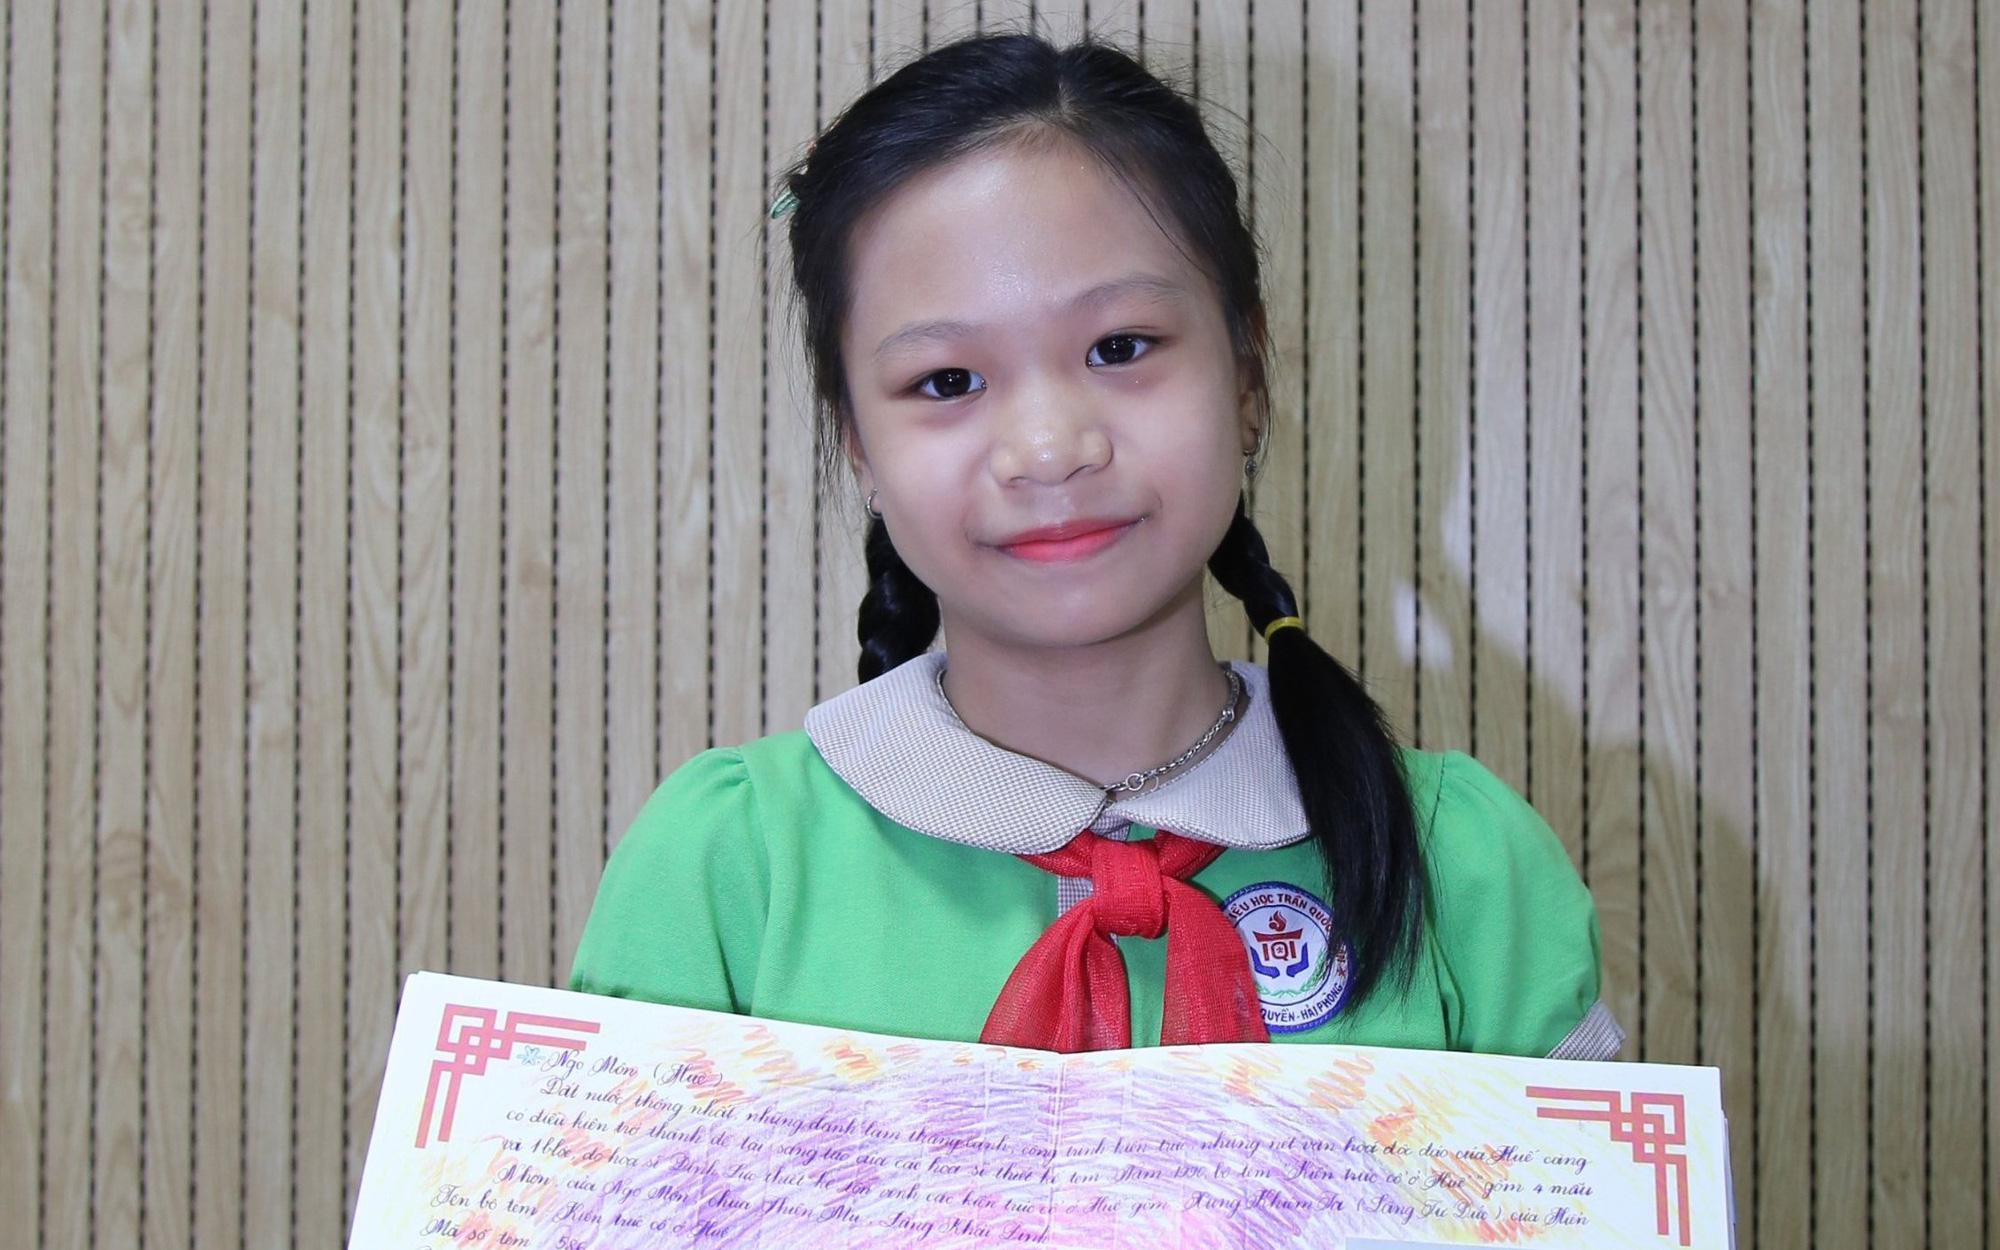 TIỂU HỌC TRẦN QUỐC
IQI
QUYỀN - HẢI PHÒNG
Ngọ Môn (Huế)
Đất nước thống nhất, những danh lam thắng cảnh, công trình kiến trúc, những nét văn hoá độc đáo của Huế càng
có điều kiện trở thành đề tài sáng tạo của các hoạ sĩ thiết kế tem. Năm 1990, bộ tem "Kiến trúc cổ ở Huế" gồm 4 mẫu
và 1 blốc, do hoạ sĩ thiết kế tôn vinh các kiến trúc cổ ở Huế gồm Xung Khiêm Tạ (Lăng Tự Đức), cửa Hiển
Nhơn, cửa Ngọ Môn, chùa Thiên Mụ, Lăng Khải Định
Tên bộ tem: Kiến trúc cổ ở Huế
Mã số tem: 586